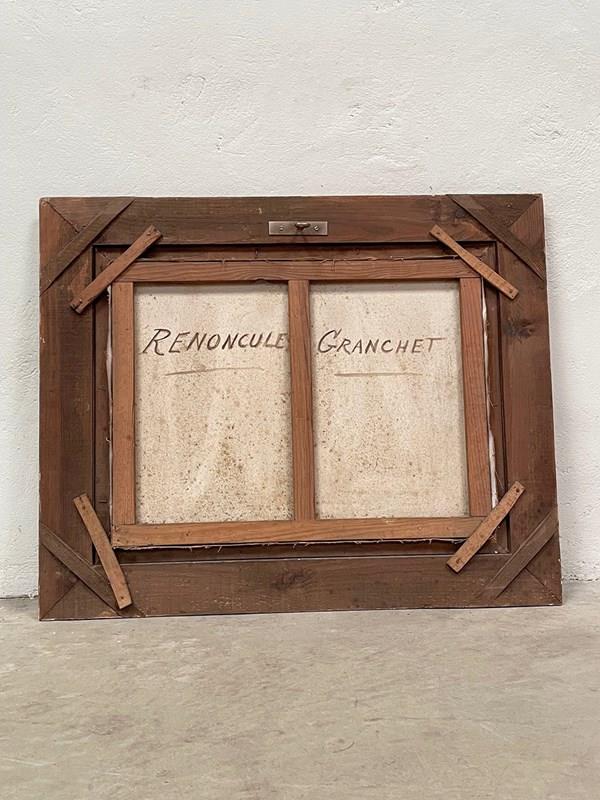 RENONCULE GRANCHET